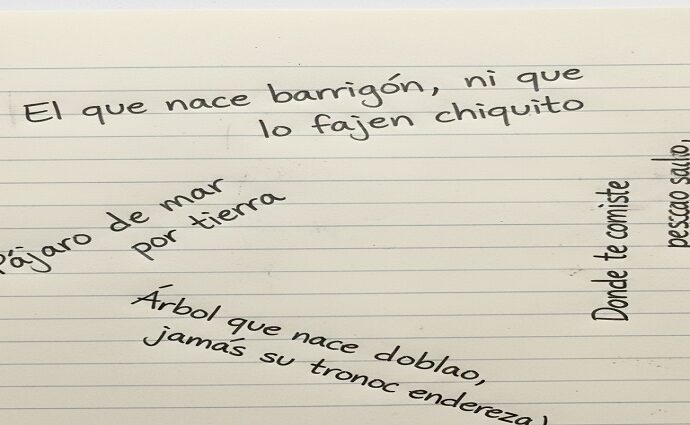 El que nace barrigón, ni que
lo fajen chiquito
Pájaro de mar
por tierra
Árbol que nace doblao,
jamás su tronoc endereza
Donde te comiste
pescao salio,